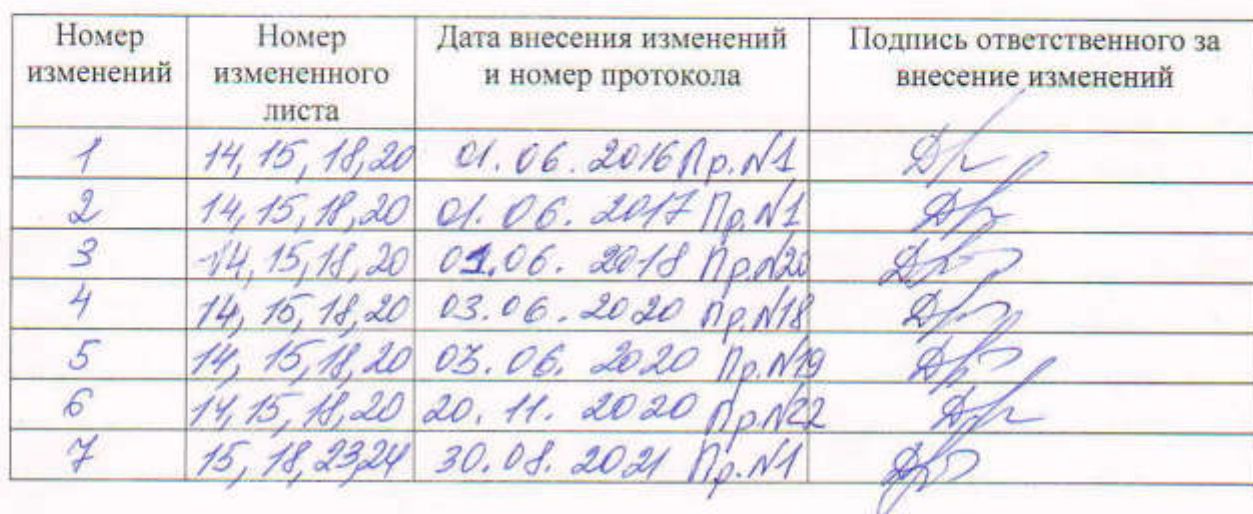 Номер изменений Номер измененного листа Дата внесения изменений и номер протокола Подпись ответственного за внесение изменений
1 14, 15, 18, 20 01.06.2016 Пр.№1
2 14, 15, 18, 20 01.06.2017 Пр.№1
3 14, 15, 18, 20 01.06.2018 Пр.№20
4 14, 15, 18, 20 03.06.2020 Пр.№18
5 14, 15, 18, 20 03.06.2020 Пр.№19
6 14, 15, 18, 20 20.11.2020 Пр.№22
7 15, 18, 23, 24 30.08.2021 Пр.№1